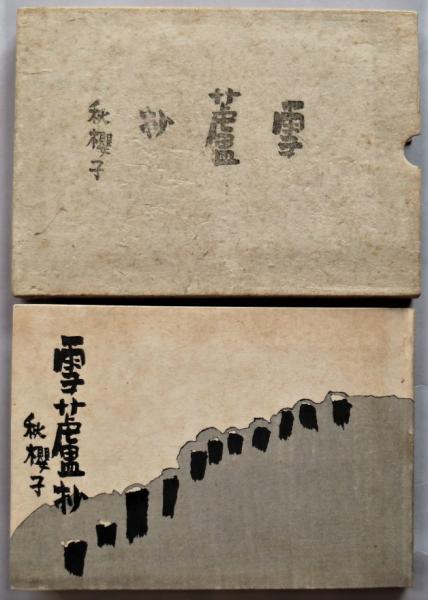 雪蘆抄
秋櫻子
雪蘆抄
秋櫻子